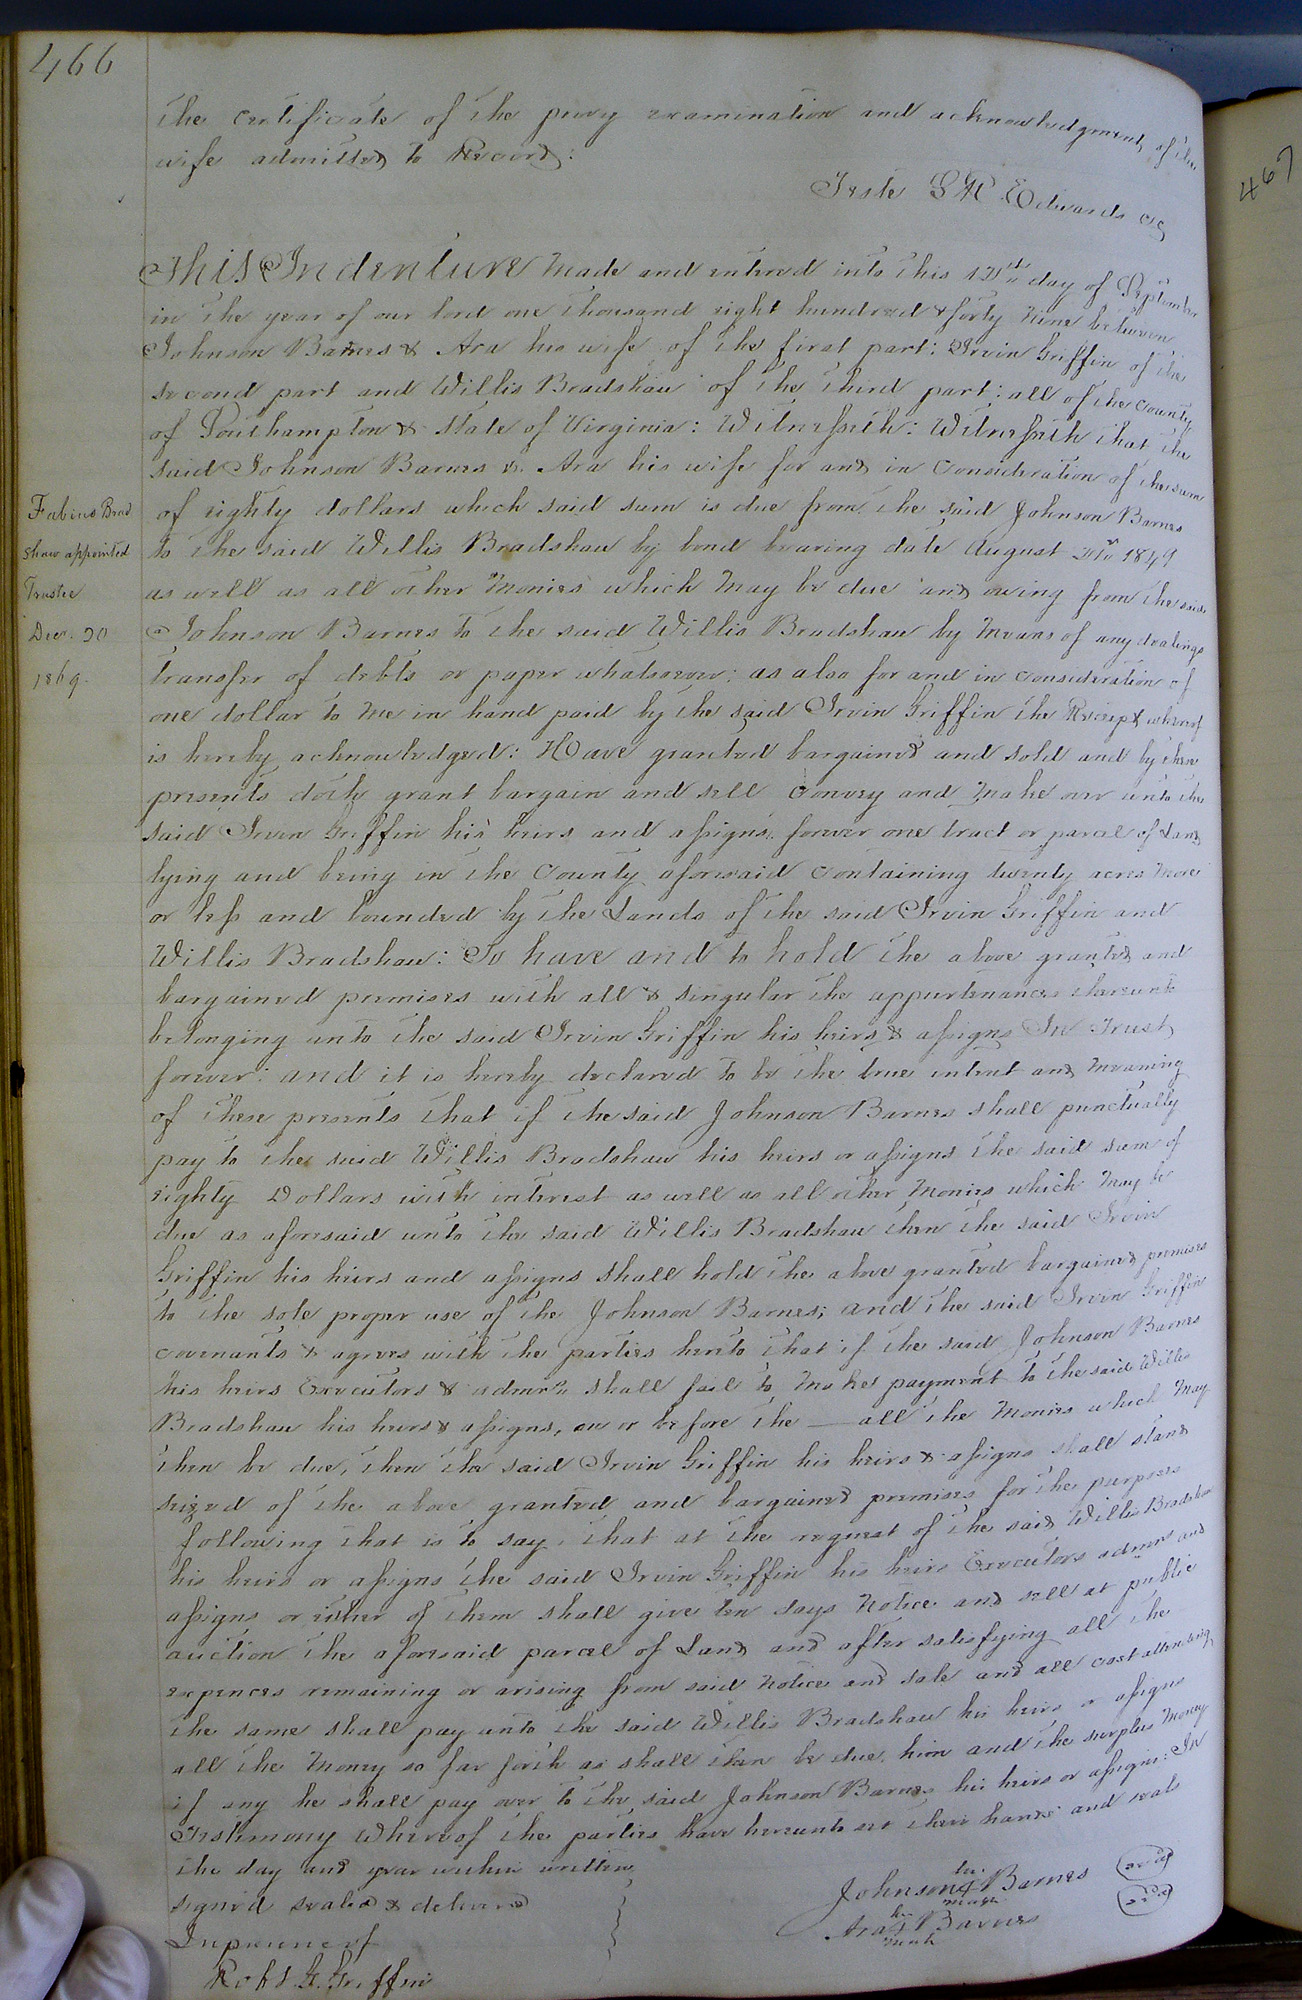 466
the certificate of the privy examination and acknowledgment of the
wife admitted to Record:
Teste L R Edwards CC
467
This Indenture Made and entered into this day of September
in the year of our lord one thousand eight hundred & forty Nine between
Johnson Barnes & Ara his wife of the first part: Irvin Griffin of the
second part and Willis Bradshaw of the third part; all of the County
of Southampton & State of Virginia: Witnesseth: Witnesseth that the
said Johnson Barnes & Ara his wife for and in Consideration of the sum
of eighty dollars which said sum is due from the said Johnson Barnes
to the said Willis Bradshaw by bond bearing date August 1849
as well as all other Monies which May be due and owing from the said
Johnson Barnes to the said Willis Bradshaw by Means of any dealings
transfer of debts or paper whatsoever; as also for and in consideration of
one dollar to Me in hand paid by the said Irvin Griffin the Receipt whereof
is hereby acknowledged: Have granted bargained and sold and by these
presents doth grant bargain and sell Convey and Make over unto the
said Irvin Griffin his heirs and assigns forever one tract or parcel of Land
lying and being in the County aforesaid Containing twenty acres More
or less and bounded by the Lands of the said Irvin Griffin and
Willis Bradshaw: To have and to hold the above granted and
bargained premises with all & singular the appurtenances thereunto
belonging unto the said Irvin Griffin his heirs & assigns In Trust
forever: and it is hereby declared to be the true intent and Meaning
of these presents that if the said Johnson Barnes shall punctually
pay to the said Willis Bradshaw his heirs or assigns the said sum of
eighty Dollars with interest as well as all other Monies which May be
due as aforesaid unto the said Willis Bradshaw then the said Irvin
Griffin his heirs and assigns shall hold the above granted bargained premises
to the sole proper use of the Johnson Barnes; and the said Irvin Griffin
covenants & agrees with the parties hereto that if the said Johnson Barnes
his heirs Executors & admrs shall fail to Make payment to the said Willis
Bradshaw his heirs & assigns, on or before the — all the Monies which May
then be due, then the said Irvin Griffin his heirs & assigns shall stand
seized of the above granted and bargained premises for the purposes
following that is to say, that at the request of the said Willis Bradshaw
his heirs or assigns the said Irvin Griffin his heirs Executors admrs and
assigns or either of them shall give ten days Notice and sell at public
auction the aforesaid parcel of Land and after satisfying all the
expences remaining or arising from said Notice and sale and all cost attending
the same shall pay unto the said Willis Bradshaw his heirs or assigns
all the Money so far forth as shall then be due him and the surplus Money
if any he shall pay over to the said Johnson Barnes his heirs or assigns: In
Testimony Whereof the parties have hereunto set their hands and seals
the day and year within written
signed sealed & delivered
In presence of
Robt. G. Griffin
his
Johnson + Barnes (seal)
mark
her
Ara + Barnes (seal)
mark
Fabius Brad
shaw appointed
Trustee
Decr. 20
1869.